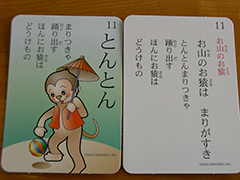 11
とんとん
まりつきゃ
踊り出す
ほんにお猿は
どうけもの
11
お山のお猿
お山のお猿は まりがすき
とんとんまりつきゃ
踊り出す
ほんにお猿は
どうけもの